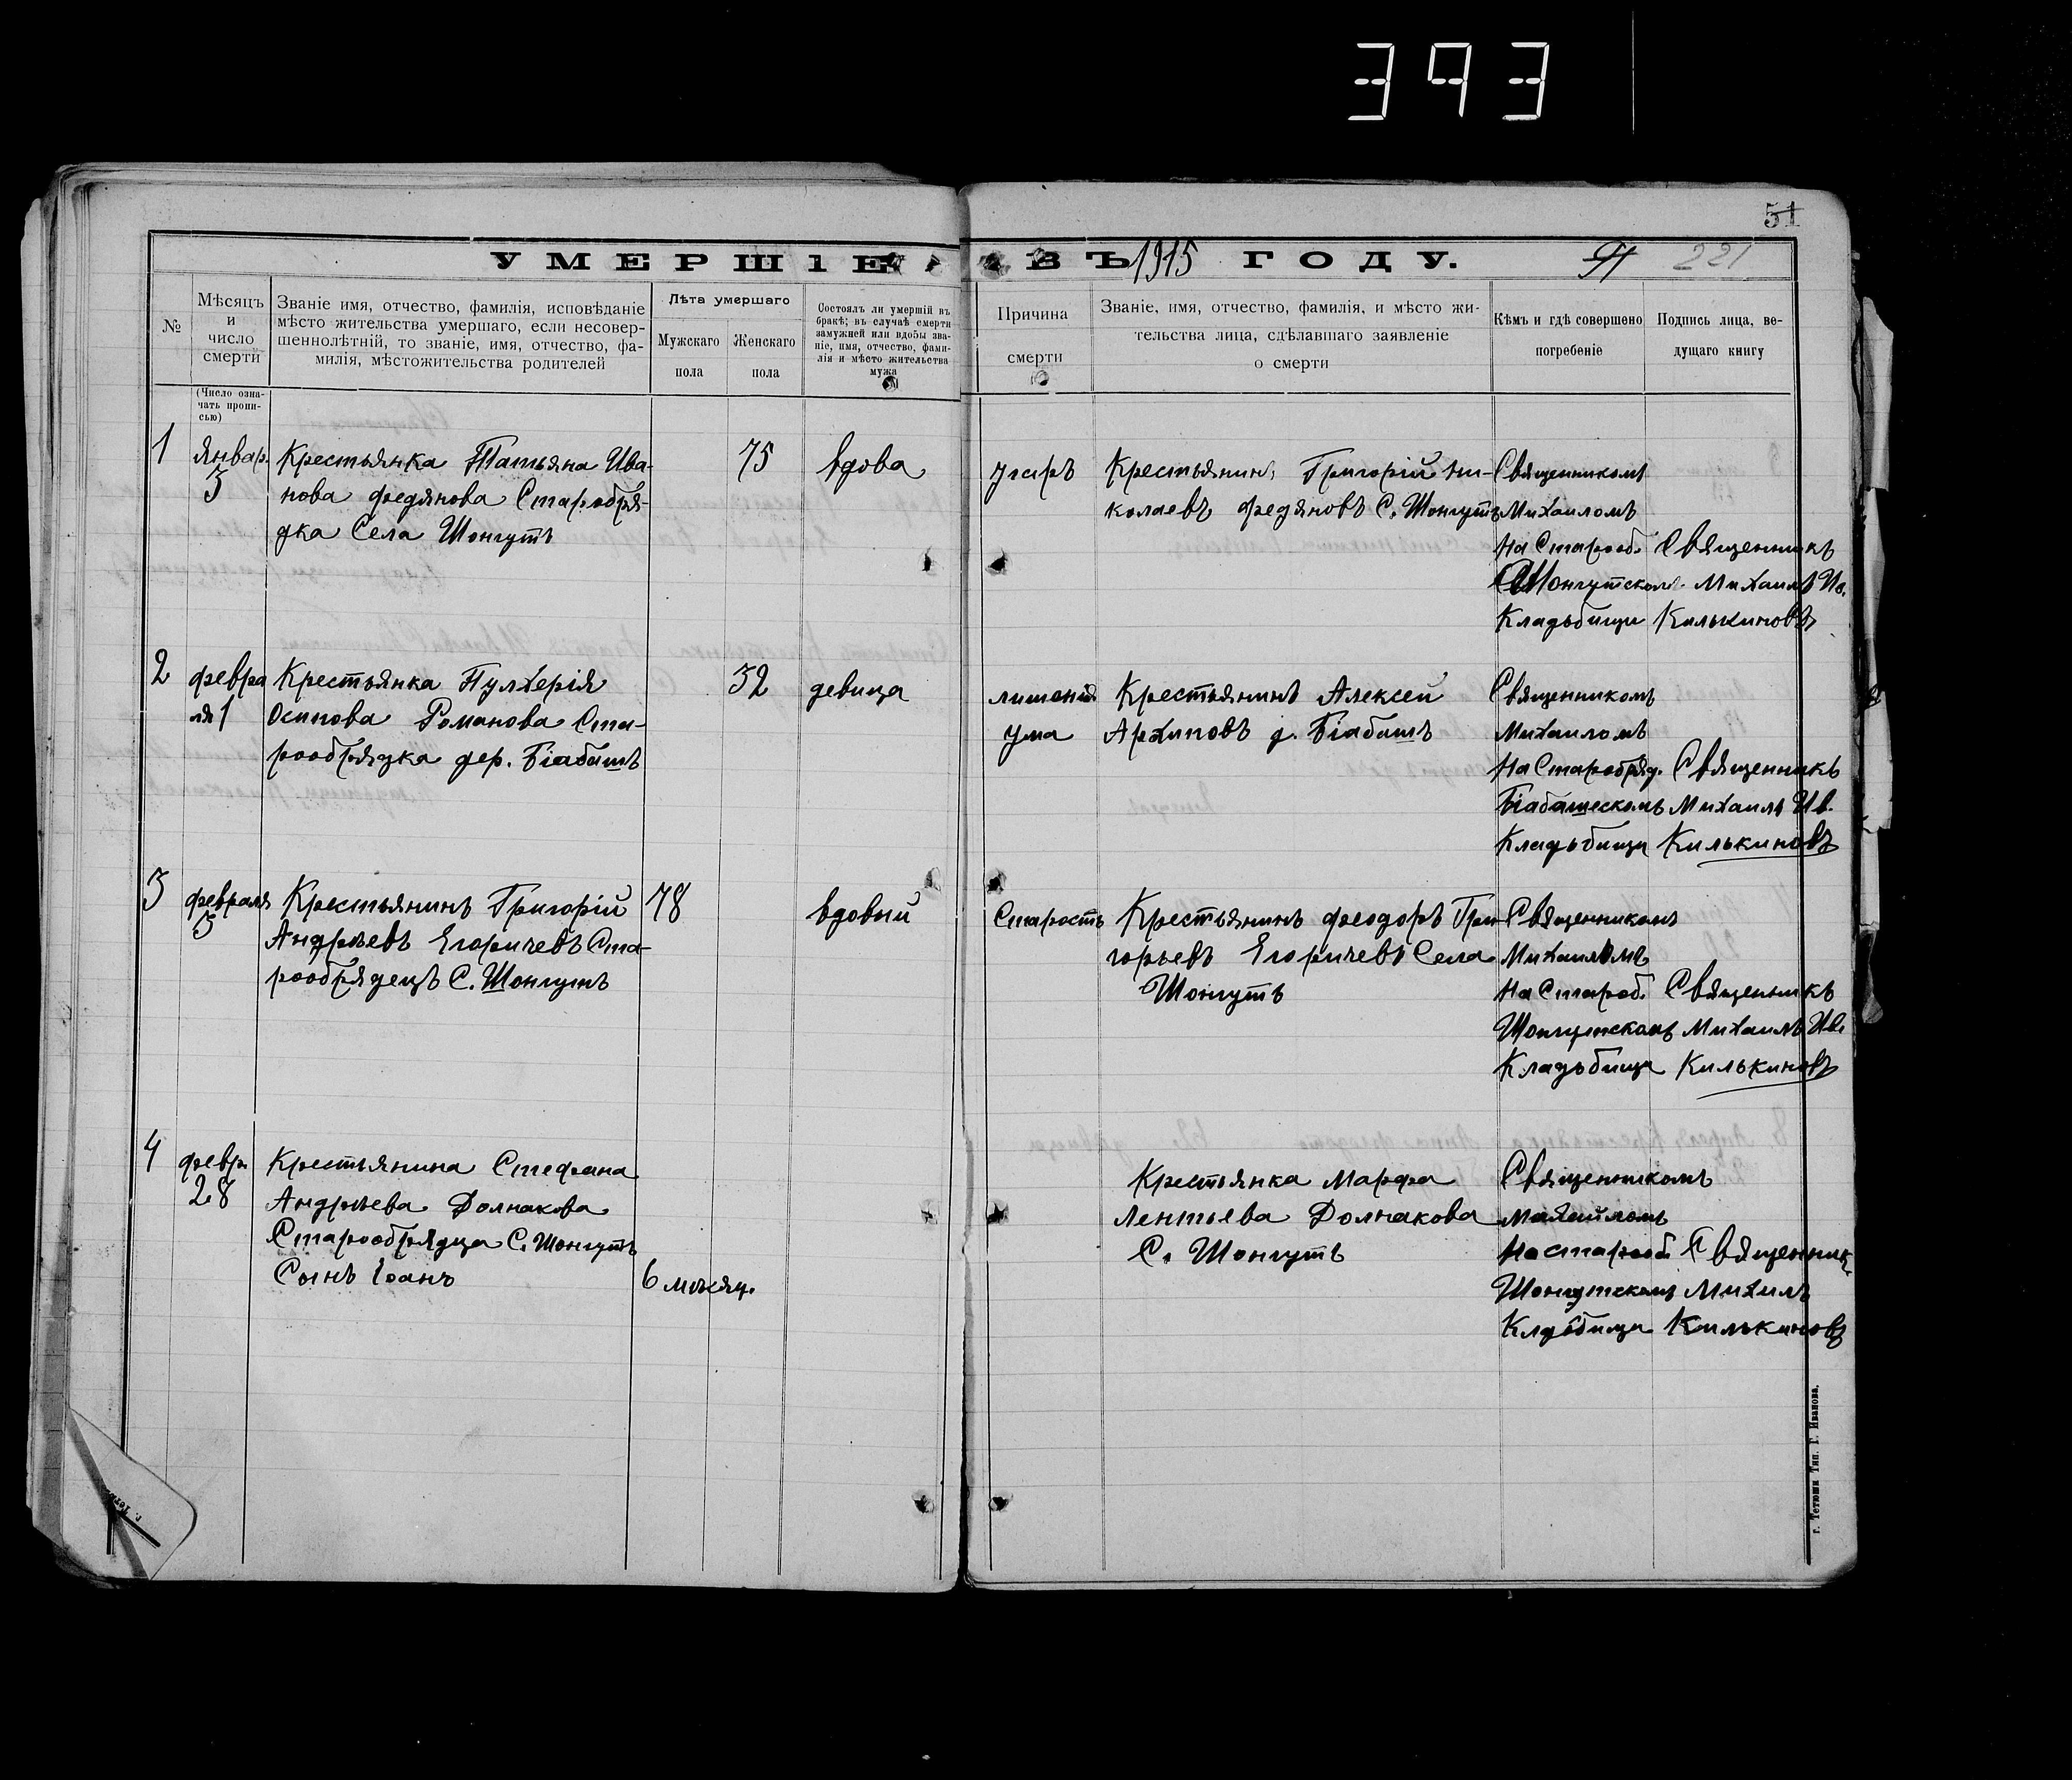 393
51
УМЕРШІЕ ВЪ 1915 ГОДУ.
91 221
№
Мѣсяцъ
и
число
смерти
(Число озна-
чать пропи-
сью)
Званіе имя, отчество, фамилія, исповѣданіе
мѣсто жительства умершаго, если несовер-
шеннолѣтній, то званіе, имя, отчество, фа-
милія, мѣстожительства родителей
Лѣта умершаго
Мужскаго
пола
Женскаго
пола
Состоялъ ли умершій въ
бракѣ; въ случаѣ смерти
замужней или вдовы зва-
ніе, имя, отчество, фами-
лія и мѣсто жительства
мужа
Причина
смерти
Званіе, имя, отчество, фамилія, и мѣсто жи-
тельства лица, сдѣлавшаго заявленіе
о смерти
Кѣмъ и гдѣ совершено
погребеніе
Подпись лица, ве-
дущаго книгу
1
январ.
3
Крестьянка Татьяна Ива-
нова Федянова Старобря-
дка Села Шонгутъ
75
вдова
угаръ
Крестьянинъ Григорій Ни-
колаевъ Федяновъ С. Шонгутъ
Священникомъ
Михаиломъ
на Старооб.
Шонгутскомъ
Кладьбищи
Священникъ
Михаилъ Ив.
Килькиновъ
2
Февра
ля 1
Крестьянка Пулхерія
Осипова Романова Ста-
рообрядка дер. Біабашъ
32
девица
лишеніе
ума
Крестьянинъ Алексей
Архиповъ д. Біабашъ
Священникомъ
Михаиломъ
на Старобряд.
Біабашескомъ
Кладьбищи
Священникъ
Михаилъ Ив.
Килькиновъ
3
февраля
3
Крестьянинъ Григорій
Андрѣевъ Егоричевъ Ста-
рообрядецъ С. Шонгутъ
78
вдовый
Старость
Крестьянинъ Феодоръ Гри-
горьевъ Егоричевъ Села
Шонгутъ
Священникомъ
Михаиломъ
на Староб.
Шонгутскомъ
Кладьбища
Священникъ
Михаилъ Ив.
Килькиновъ
4
февр.
28
Крестьянина Стефана
Андрѣева Долнакова
Старообрядца С. Шонгутъ
Сынъ Іоанъ
6 мѣсяц.
Крестьянка Марфа
Лентьева Долнакова
С. Шонгутъ
Священникомъ
Михайломъ
на старооб.
Шонгутскомъ
Кладбища
Священник
Михилъ
Килькиновъ
г. Тетюши Тип. Г. Иванова.